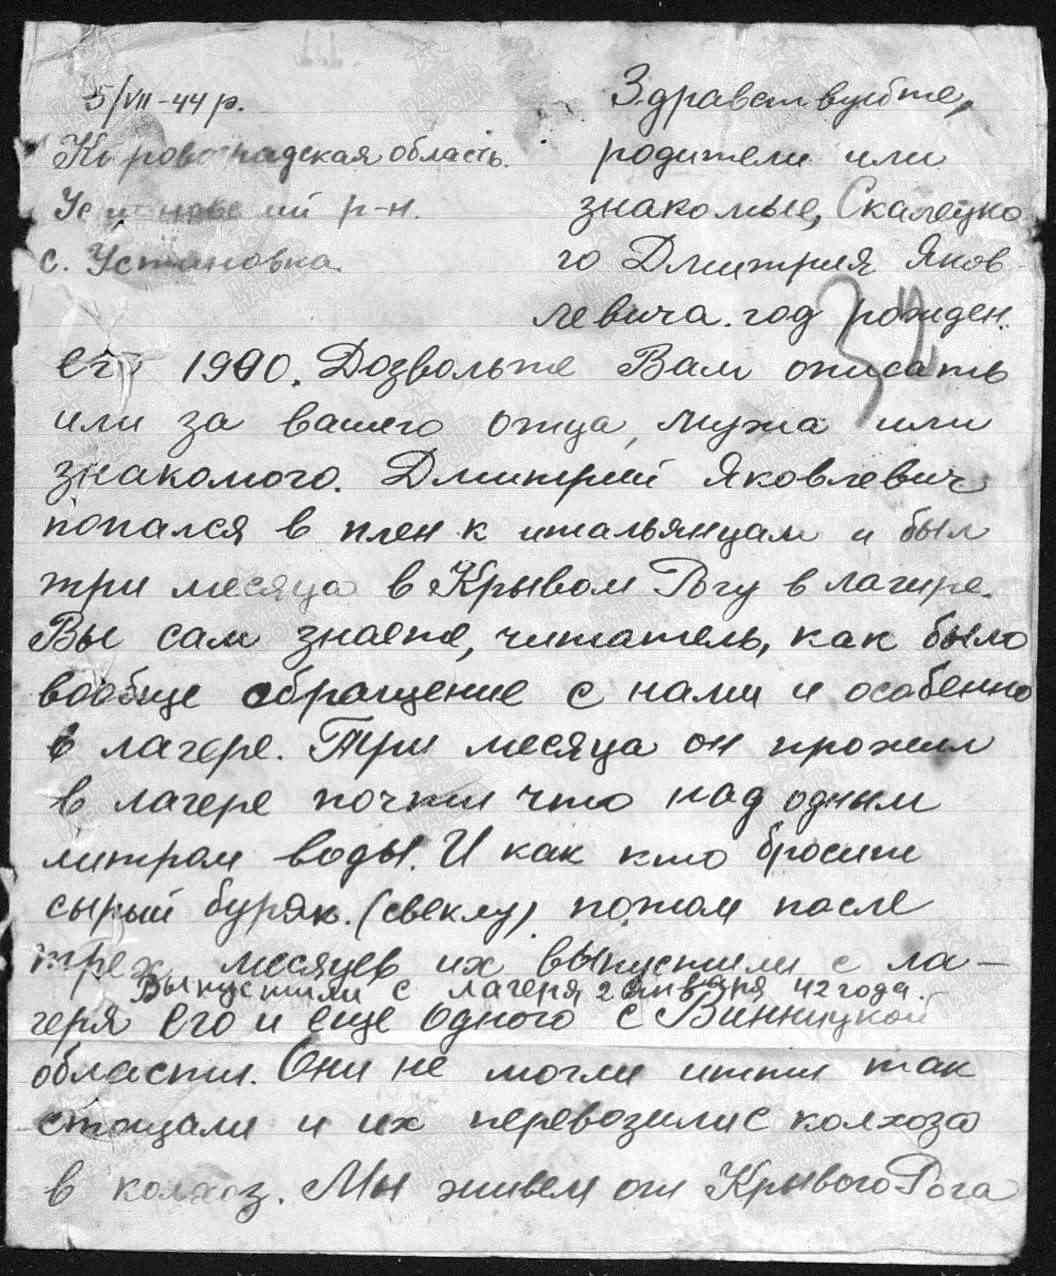 5/VII-44 р.
Кировоградская область.
Устиновский р-н.
с. Устиновка.
Здравствуйте,
родители или
знакомые, Скалецко
го Дмитрия Яков
левича. год рожден.
32
его 1900. Дозвольте Вам описать
или за вашего отца, мужа или
знакомого. Дмитрий Яковлевич
попался в плен к итальянцам и был
три месяца в Крывом Рогу в лагире.
Вы сам знаете, читатель, как было
вообще обращение с нами и особенно
в лагере. Три месяца он прожил
в лагере почти что над одным
литром воды. И как кто бросит
сырый буряк. (свеклу). потом после
трех месяцев их выпустили с ла-
Выпустили с лагеря 2 января 42 года.
геря его и еще одного с Винницкой
области. Они не могли итти так
стощали и их перевозили с колхоза
в колхоз. Мы живем от Крывого Рога